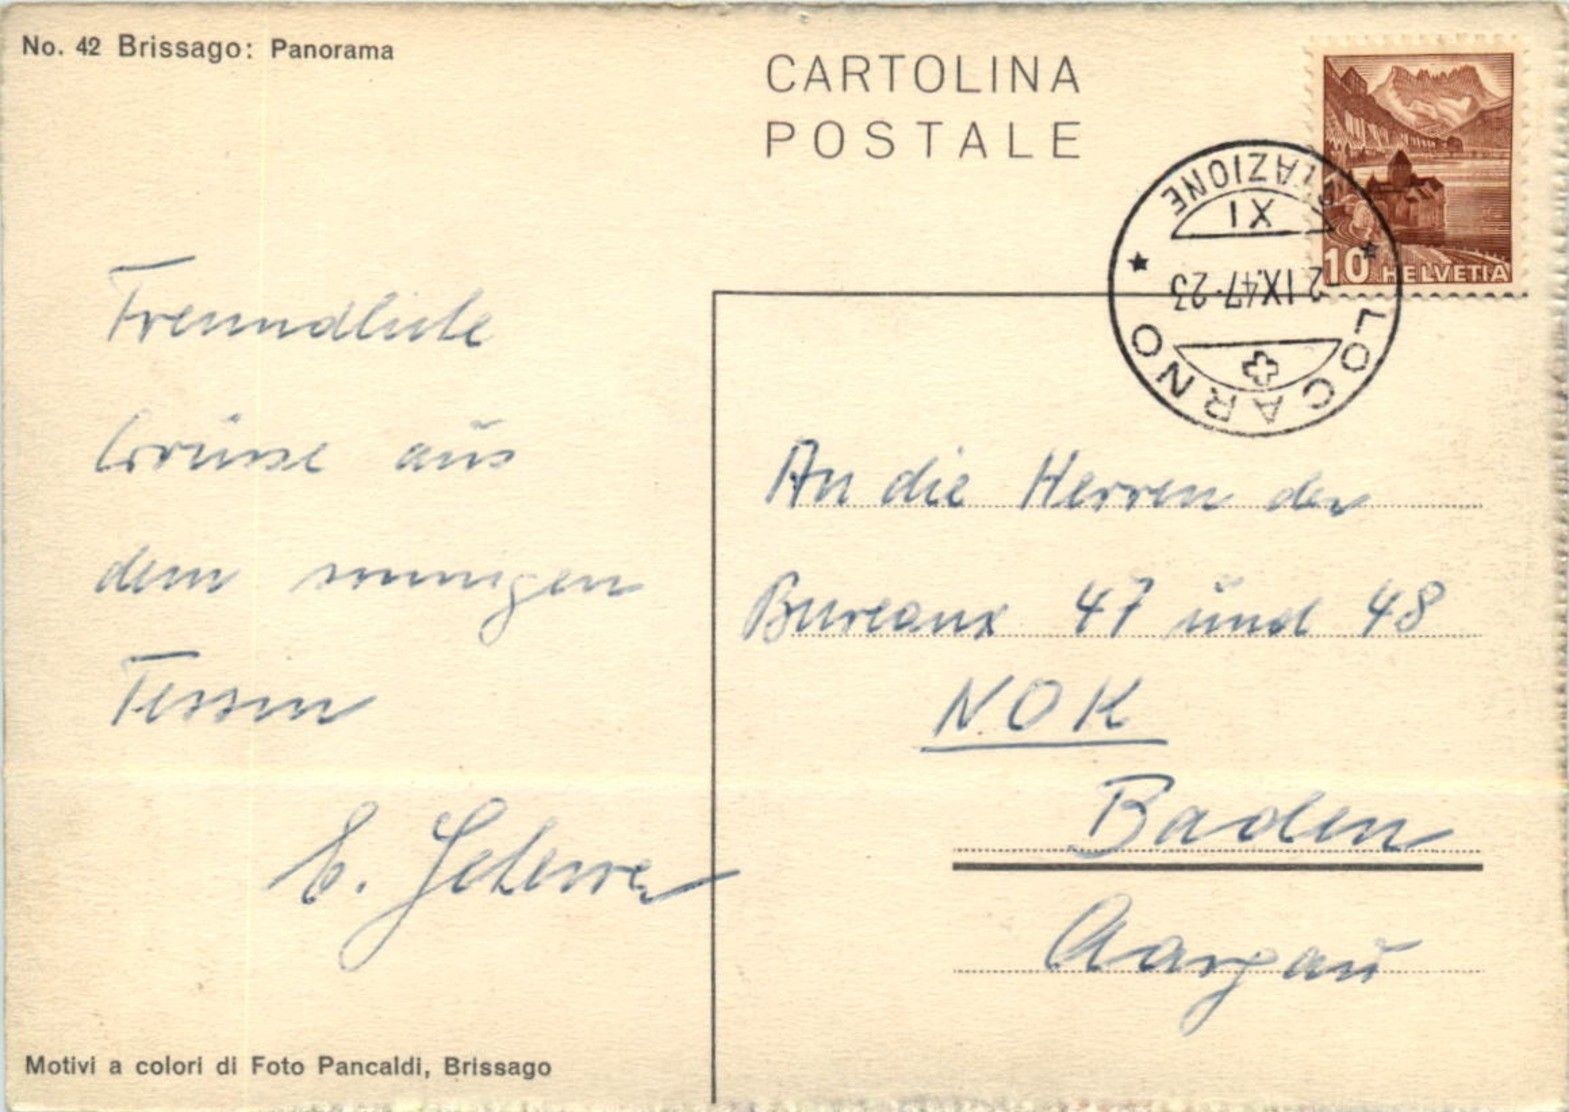 No. 42 Brissago: Panorama
CARTOLINA
POSTALE
10 HELVETIA
LOCARNO
XI
2.IX.47-23
Freundliche
Grüsse aus
dem sonnigen
Tessin
An die Herren der
Bureaux 47 und 48
NOK
Baden
Aargau
Motivi a colori di Foto Pancaldi, Brissago